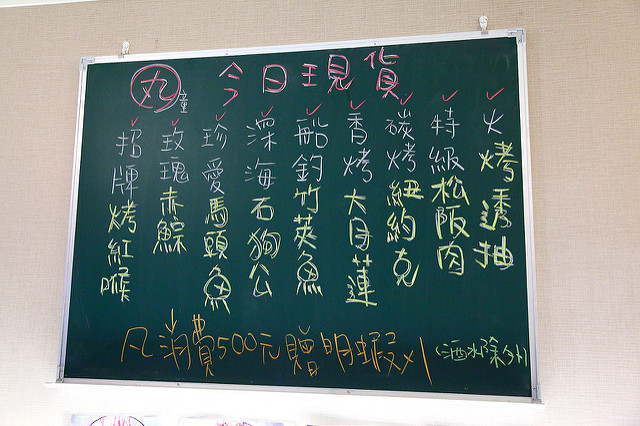 丸 童 今日現貨
火烤透抽
特級松阪肉
碳烤紐約克
香烤大目蓮
船釣竹莢魚
深海石狗公
珍愛馬頭魚
玫瑰赤鯮
招牌烤紅喉
凡消費500元贈明蝦x1 (酒水除外)